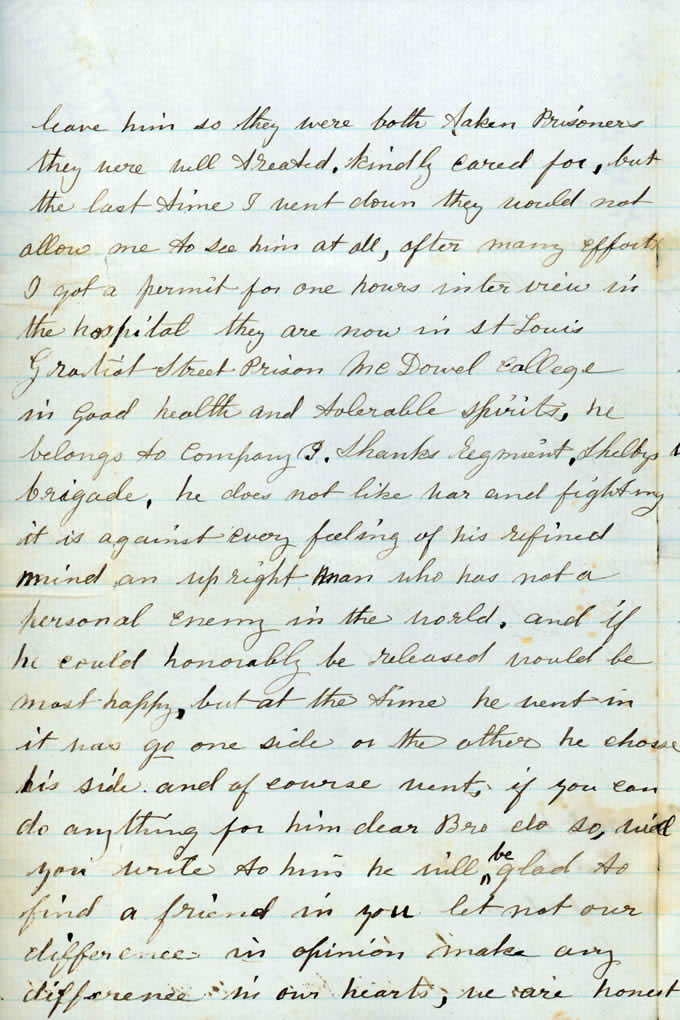 leave him so they were both taken Prisoners
they were well treated, kindly cared for, but
the last time I went down they would not
allow me to see him at all, after many efforts
I got a permit for one hours inter view in
the hospital they are now in st Louis
Gratiot Street Prison Mc Dowel College
in good health and tolerable spirits, he
belongs to Company Shanks Regment, Shelbys
brigade, he does not like war and fighting
it is against every feeling of his refined
mind an up right man who has not a
personal enemy in the world, and if
he could honorably be released would be
most happy, but at the time he went in
it was go one side or the other he chose
his side and of course went, if you can
do anything for him dear Bro do so, will
you write to him he will be glad to
find a friend in you let not our
difference in opinion make any
difference in our hearts, we are honest